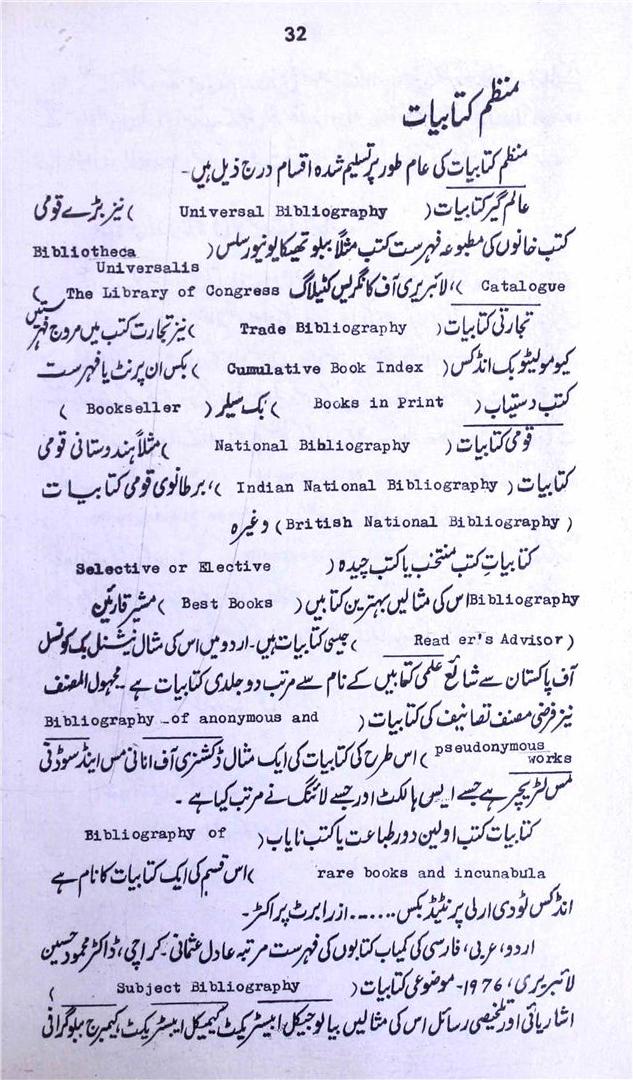 32
منظم کتابیات
منظم کتابیات کی عام طور پر تسلیم شدہ اقسام درج ذیل ہیں۔
عالم گیر کتابیات (Universal Bibliography) نیز بڑے قومی
کتب خانوں کی مطبوعہ فہرست کتب مثلاً ببلو تھیکا یونیورسلس (Bibliotheca
Universalis
Catalogue)، لائبریری آف کانگریس کٹیلاگ (The Library of Congress
تجارتی کتابیات (Trade Bibliography) نیز تجارت کتب میں مروج فہرستیں
کیومولیٹو بک انڈکس (Cumulative Book Index) بکس ان پرنٹ یا فہرست
کتب دستیاب (Books in Print) بک سیلر (Bookseller)
قومی کتابیات (National Bibliography) مثلاً ہندوستانی قومی
کتابیات (Indian National Bibliography)، برطانوی قومی کتابیات
(British National Bibliography) وغیرہ
کتابیاتِ کتب منتخب یا کتب چیدہ (Selective or Elective
Bibliography اس کی مثالیں بہترین کتابیں (Best Books) مشیر قارئین
(Read er's Advisor) جیسی کتابیات ہیں۔ اردو میں اس کی مثال نیشنل بک کونسل
آف پاکستان سے شائع علمی کتابیں کے نام سے مرتب دو جلدی کتابیات ہے۔ مجہول المصنف
نیز فرضی مصنف تصانیف کی کتابیات (Bibliography of anonymous and
pseudonymous works) اس طرح کی کتابیات کی ایک مثال ڈکشنری آف انانی مس اینڈ سوڈنی
مس لٹریچر ہے جسے ایس ہالکٹ اور جسے لائنگ نے مرتب کیا ہے۔
کتابیات کتب اولین دور طباعت یا کتب نایاب (Bibliography of
rare books and incunabula) اس قسم کی ایک کتابیات کا نام ہے
انڈکس ٹو دی ارلی پرنٹیڈ بکس...... از رابرٹ پراکٹر۔
اردو، عربی، فارسی کی کمیاب کتابوں کی فہرست مرتبہ عادل عثمانی۔ کراچی، ڈاکٹر محمود حسین
لائبریری، 1976۔ موضوعی کتابیات (Subject Bibliography)
اشاریائی اور تلخیصی رسائل اس کی مثالیں بیالوجیکل ابسٹریکٹ، کیمیکل ابسٹریکٹ، کیمبرج ببلوگرافی